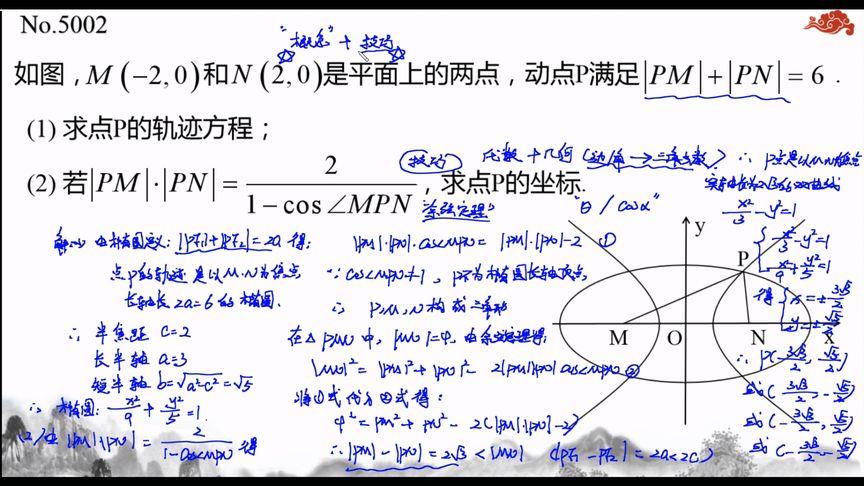 No.5002
"概念" + 技巧
如图，M (−2, 0) 和 N (2, 0) 是平面上的两点，动点P满足 |PM| + |PN| = 6 .
(1) 求点P的轨迹方程；
(2) 若 |PM| · |PN| = 2 / (1 − cos ∠MPN)，求点P的坐标.
技巧 代数 + 几何 (边/角 → 三角函数)
"余弦定理" "θ / cosα"
由椭圆定义: |PF₁| + |PF₂| = 2a 得:
点P的轨迹是以M、N为焦点
长轴长 2a = 6 的椭圆.
∴ 半焦距 c = 2
长半轴 a = 3
短半轴 b = √(a² − c²) = √5
∴ 椭圆: x²/9 + y²/5 = 1.
(2) 由 |PM|·|PN| = 2 / (1 − cos∠MPN) 得
|PM|·|PN|·cos∠MPN = |PM|·|PN| − 2 ①
∵ cos∠MPN ≠ 1, P不为椭圆长轴顶点,
∴ P, M, N 构成三角形
在△PMN 中, |MN| = 4, 由余弦定理得:
|MN|² = |PM|² + |PN|² − 2|PM||PN| cos∠MPN ②
将①式代入②式得:
4² = PM² + PN² − 2(|PM|·|PN| − 2)
∴ |PM| − |PN| = 2√3 < |MN| (|PF₁ − PF₂| = 2a < 2c)
∴ P点是以M、N为焦点
实轴长为2√3的双曲线
x²/3 − y² = 1
{ x²/3 − y² = 1
x²/9 + y²/5 = 1
得 { x = ± 3√3/2
y = ± √5/2
∴ P( 3√3/2, √5/2 )
或 ( 3√3/2, − √5/2 )
或 ( − 3√3/2, √5/2 )
或 ( − 3√3/2, − √5/2 )
y
P
M
O
N
x